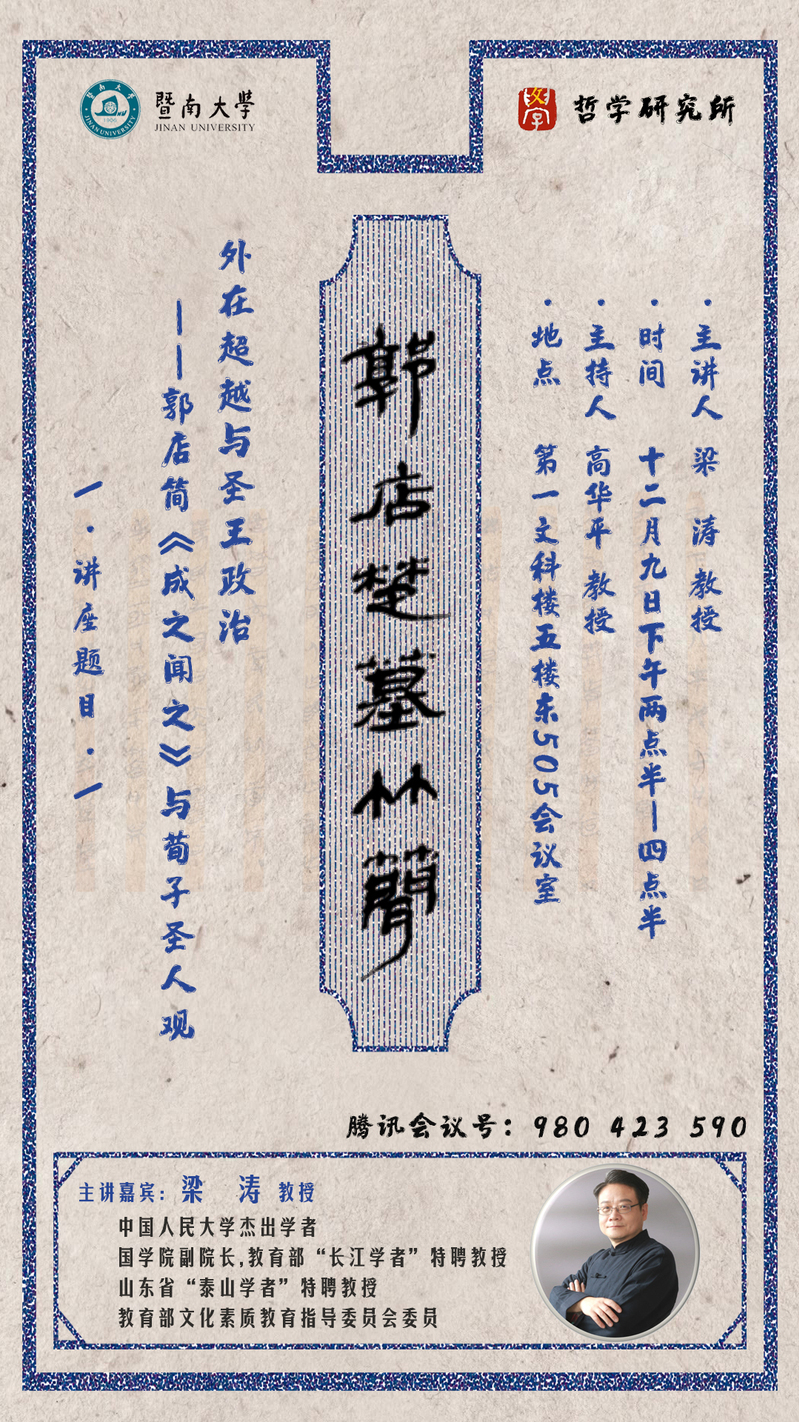 暨南大學
JINAN UNIVERSITY
哲学研究所
郭店楚墓竹簡
·主讲人 梁 涛 教授
·时间 十二月九日下午两点半—四点半
·主持人 高华平 教授
·地点 第一文科楼五楼东505会议室
外在超越与圣王政治
——郭店简《成之闻之》与荀子圣人观
—·讲座题目·—
腾讯会议号：980 423 590
主讲嘉宾：梁 涛 教授
中国人民大学杰出学者
国学院副院长,教育部“长江学者”特聘教授
山东省“泰山学者”特聘教授
教育部文化素质教育指导委员会委员